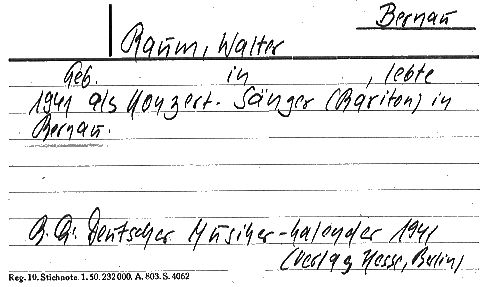 Bernau
Raum, Walter
Geb. in , lebte
1941 als Konzert-Sänger (Bariton) in
Bernau.
Deutscher Musiker-Kalender 1941
(Verlag Hesse, Berlin)
Reg. 10. Stichnote. 1. 50. 232000. A. 803. S. 4062